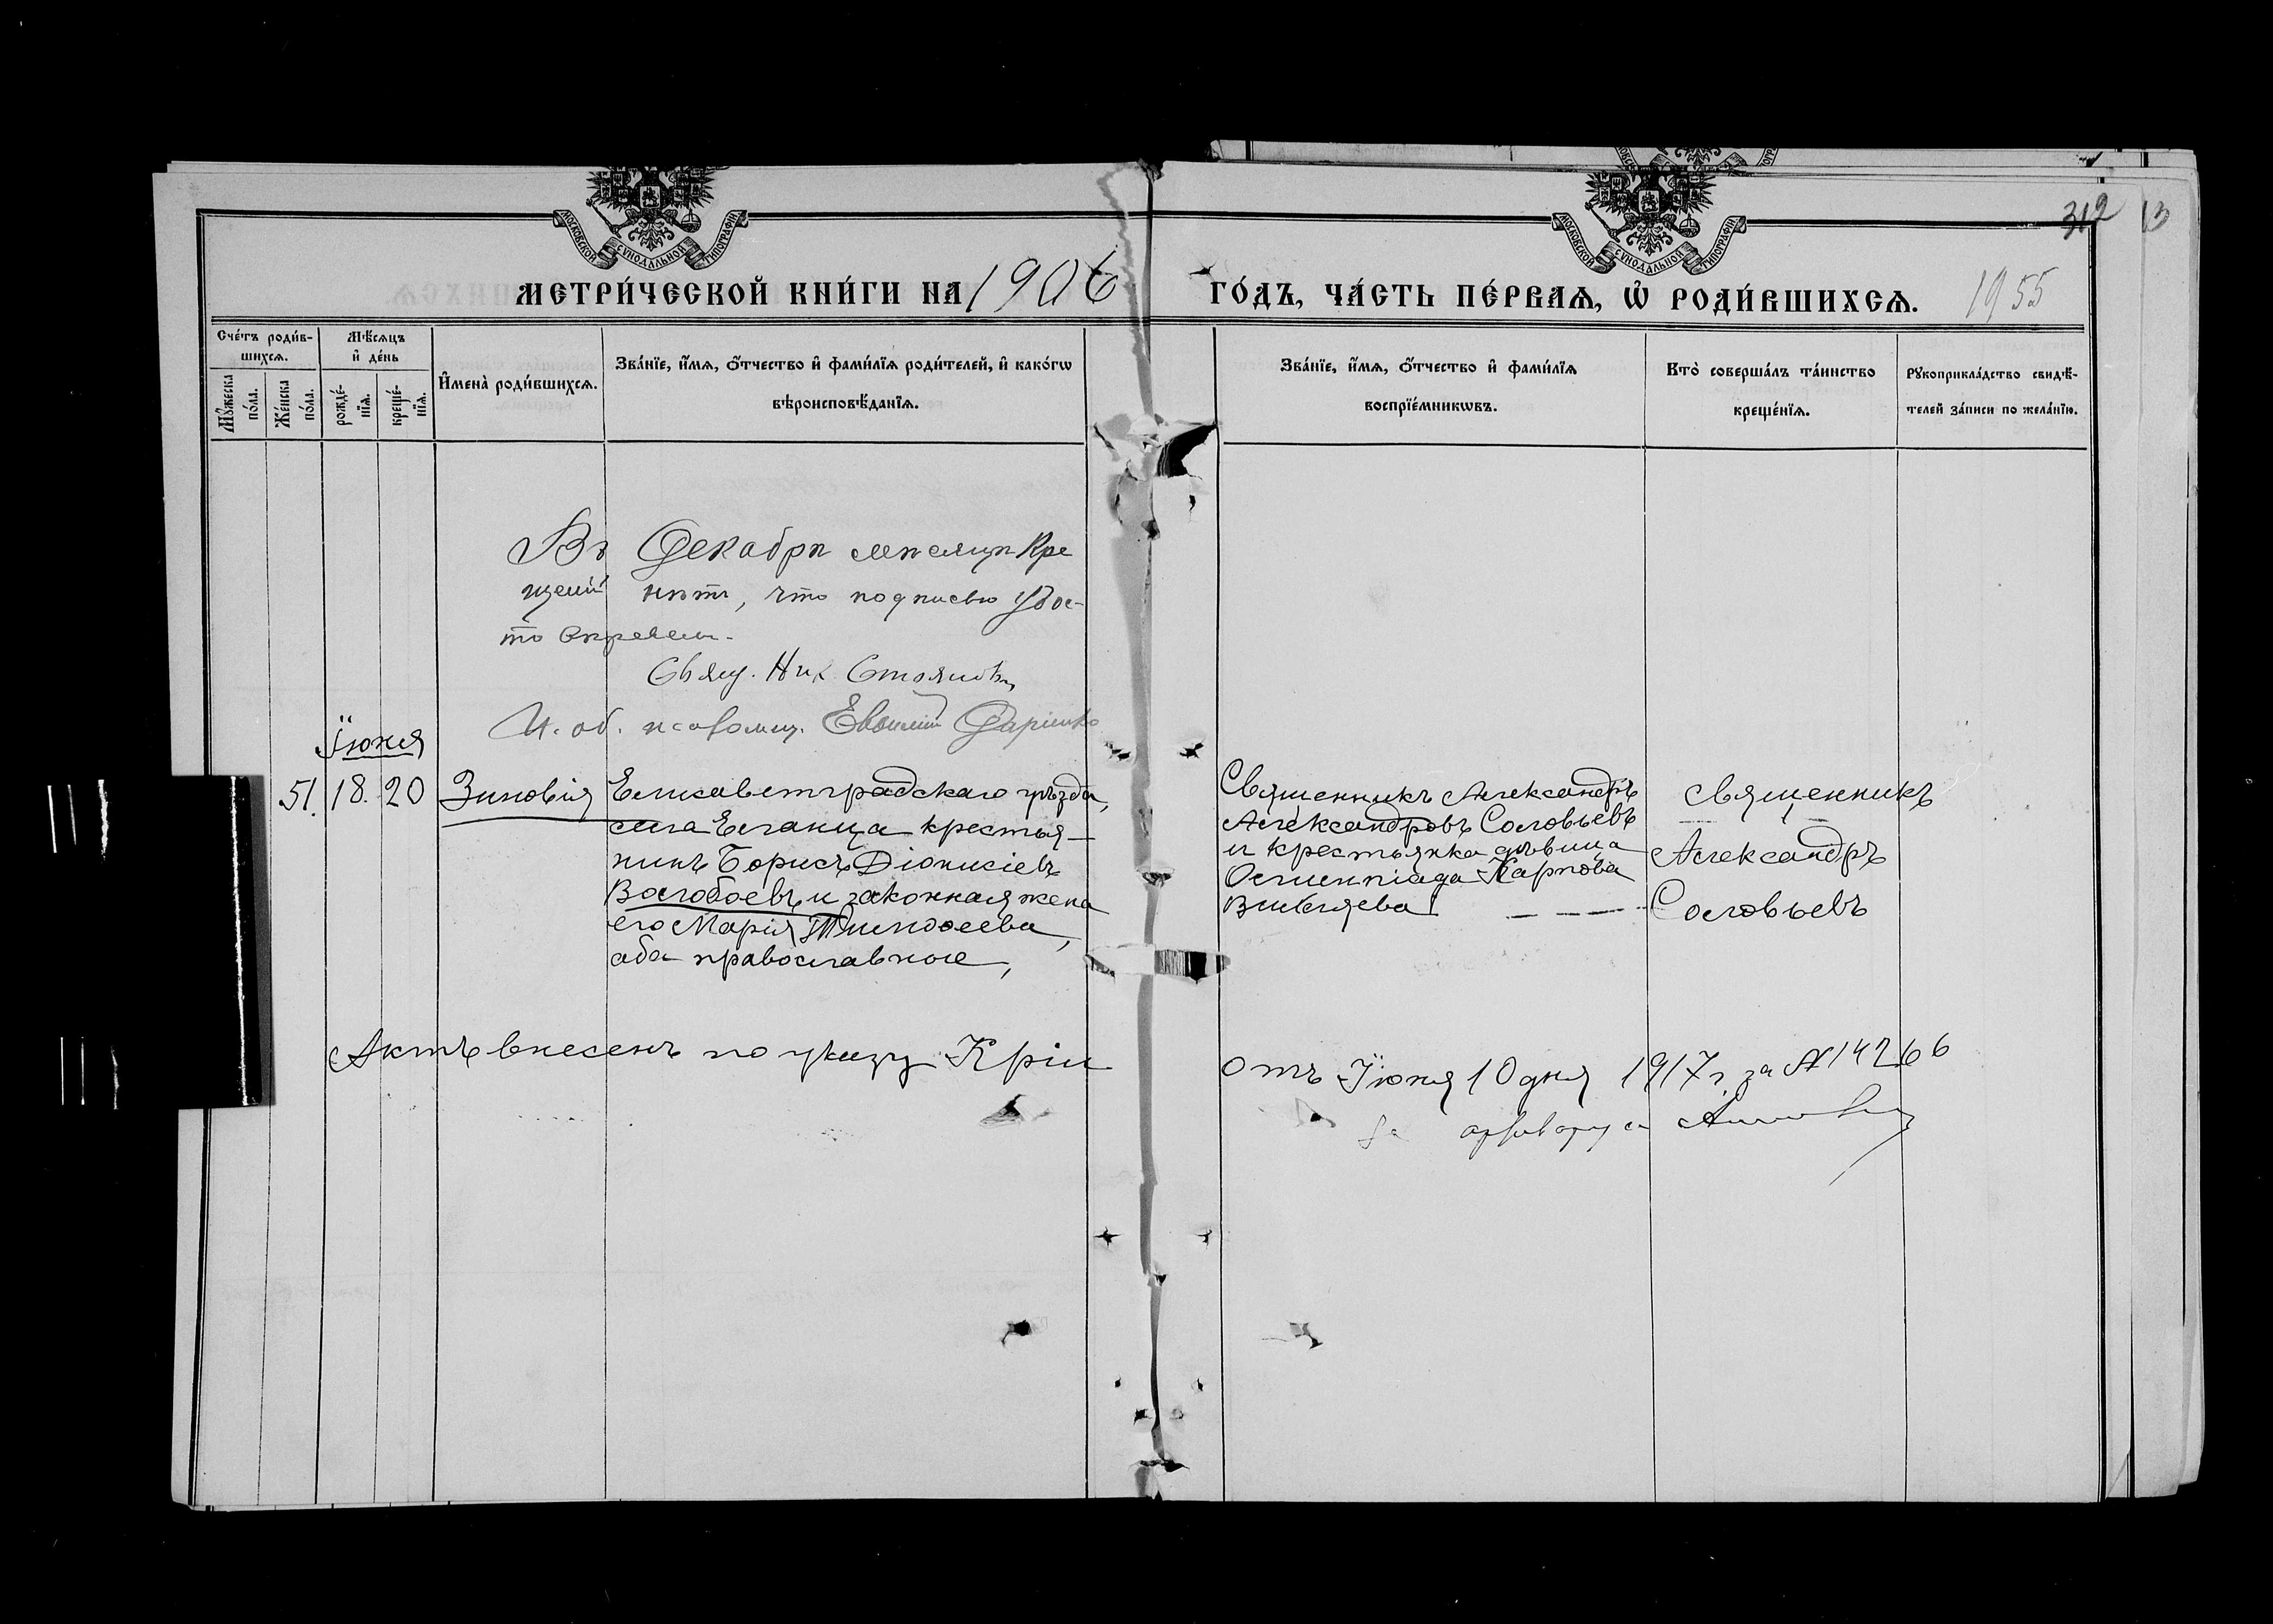 МОСКОВСКОЙ СѴНОДАЛЬНОЙ ТИПОГРАФІИ
МОСКОВСКОЙ СѴНОДАЛЬНОЙ ТИПОГРАФІИ
312
13
МЕТРИ́ЧЕСКОЙ КНИ́ГИ НА 1906 ГО́ДЪ, ЧА́СТЬ ПЕ́РВАЯ, Ѡ҆ РОДИ́ВШИХСЯ. 1955
Сче́тъ роди́в-
шихся.
Мꙋ́жеска по́ла.
Же́нска по́ла.
Мѣ́сяцъ
и҆ де́нь
рожде́-нїя.
креще́-нїя.
И҆мена̀ роди́вшихся.
Зва́нїе, и҆́мя, ѻ҆́тчество и҆ фами́лїя роди́телей, и҆ како́гѡ
вѣроисповѣ́данїя.
Зва́нїе, и҆́мя, ѻ҆́тчество и҆ фами́лїя
воспрїе́мникѡвъ.
Кто̀ соверша́лъ та́инство
креще́нїя.
Рꙋкоприкла́дство свидѣ́-
телей за́писи по жела́нїю.
Въ Декабрѣ мѣсяцѣ Кре
щеній нѣтъ, что подписью удос-
то вѣряемъ.
Свящ. Ник. Стояновъ
И. об. псаломщ. Евфимій
Їюня
51. 18. 20 Зиновія
Елисаветградскаго уѣзда,
села Еланца крестья-
нинъ Борисъ Діонисіевъ
Волобоевъ и законная жена
его Марія Тимофеева,
оба православные,
Священникъ Александръ
Александровъ Соловьевъ
и крестьянка дѣвица
Олимпіада Карпова
священникъ
Александръ
Соловьевъ
Актъ внесенъ по указу Х
отъ Їюня 10 дня 1917 г. за № 14266
За архиваріуса